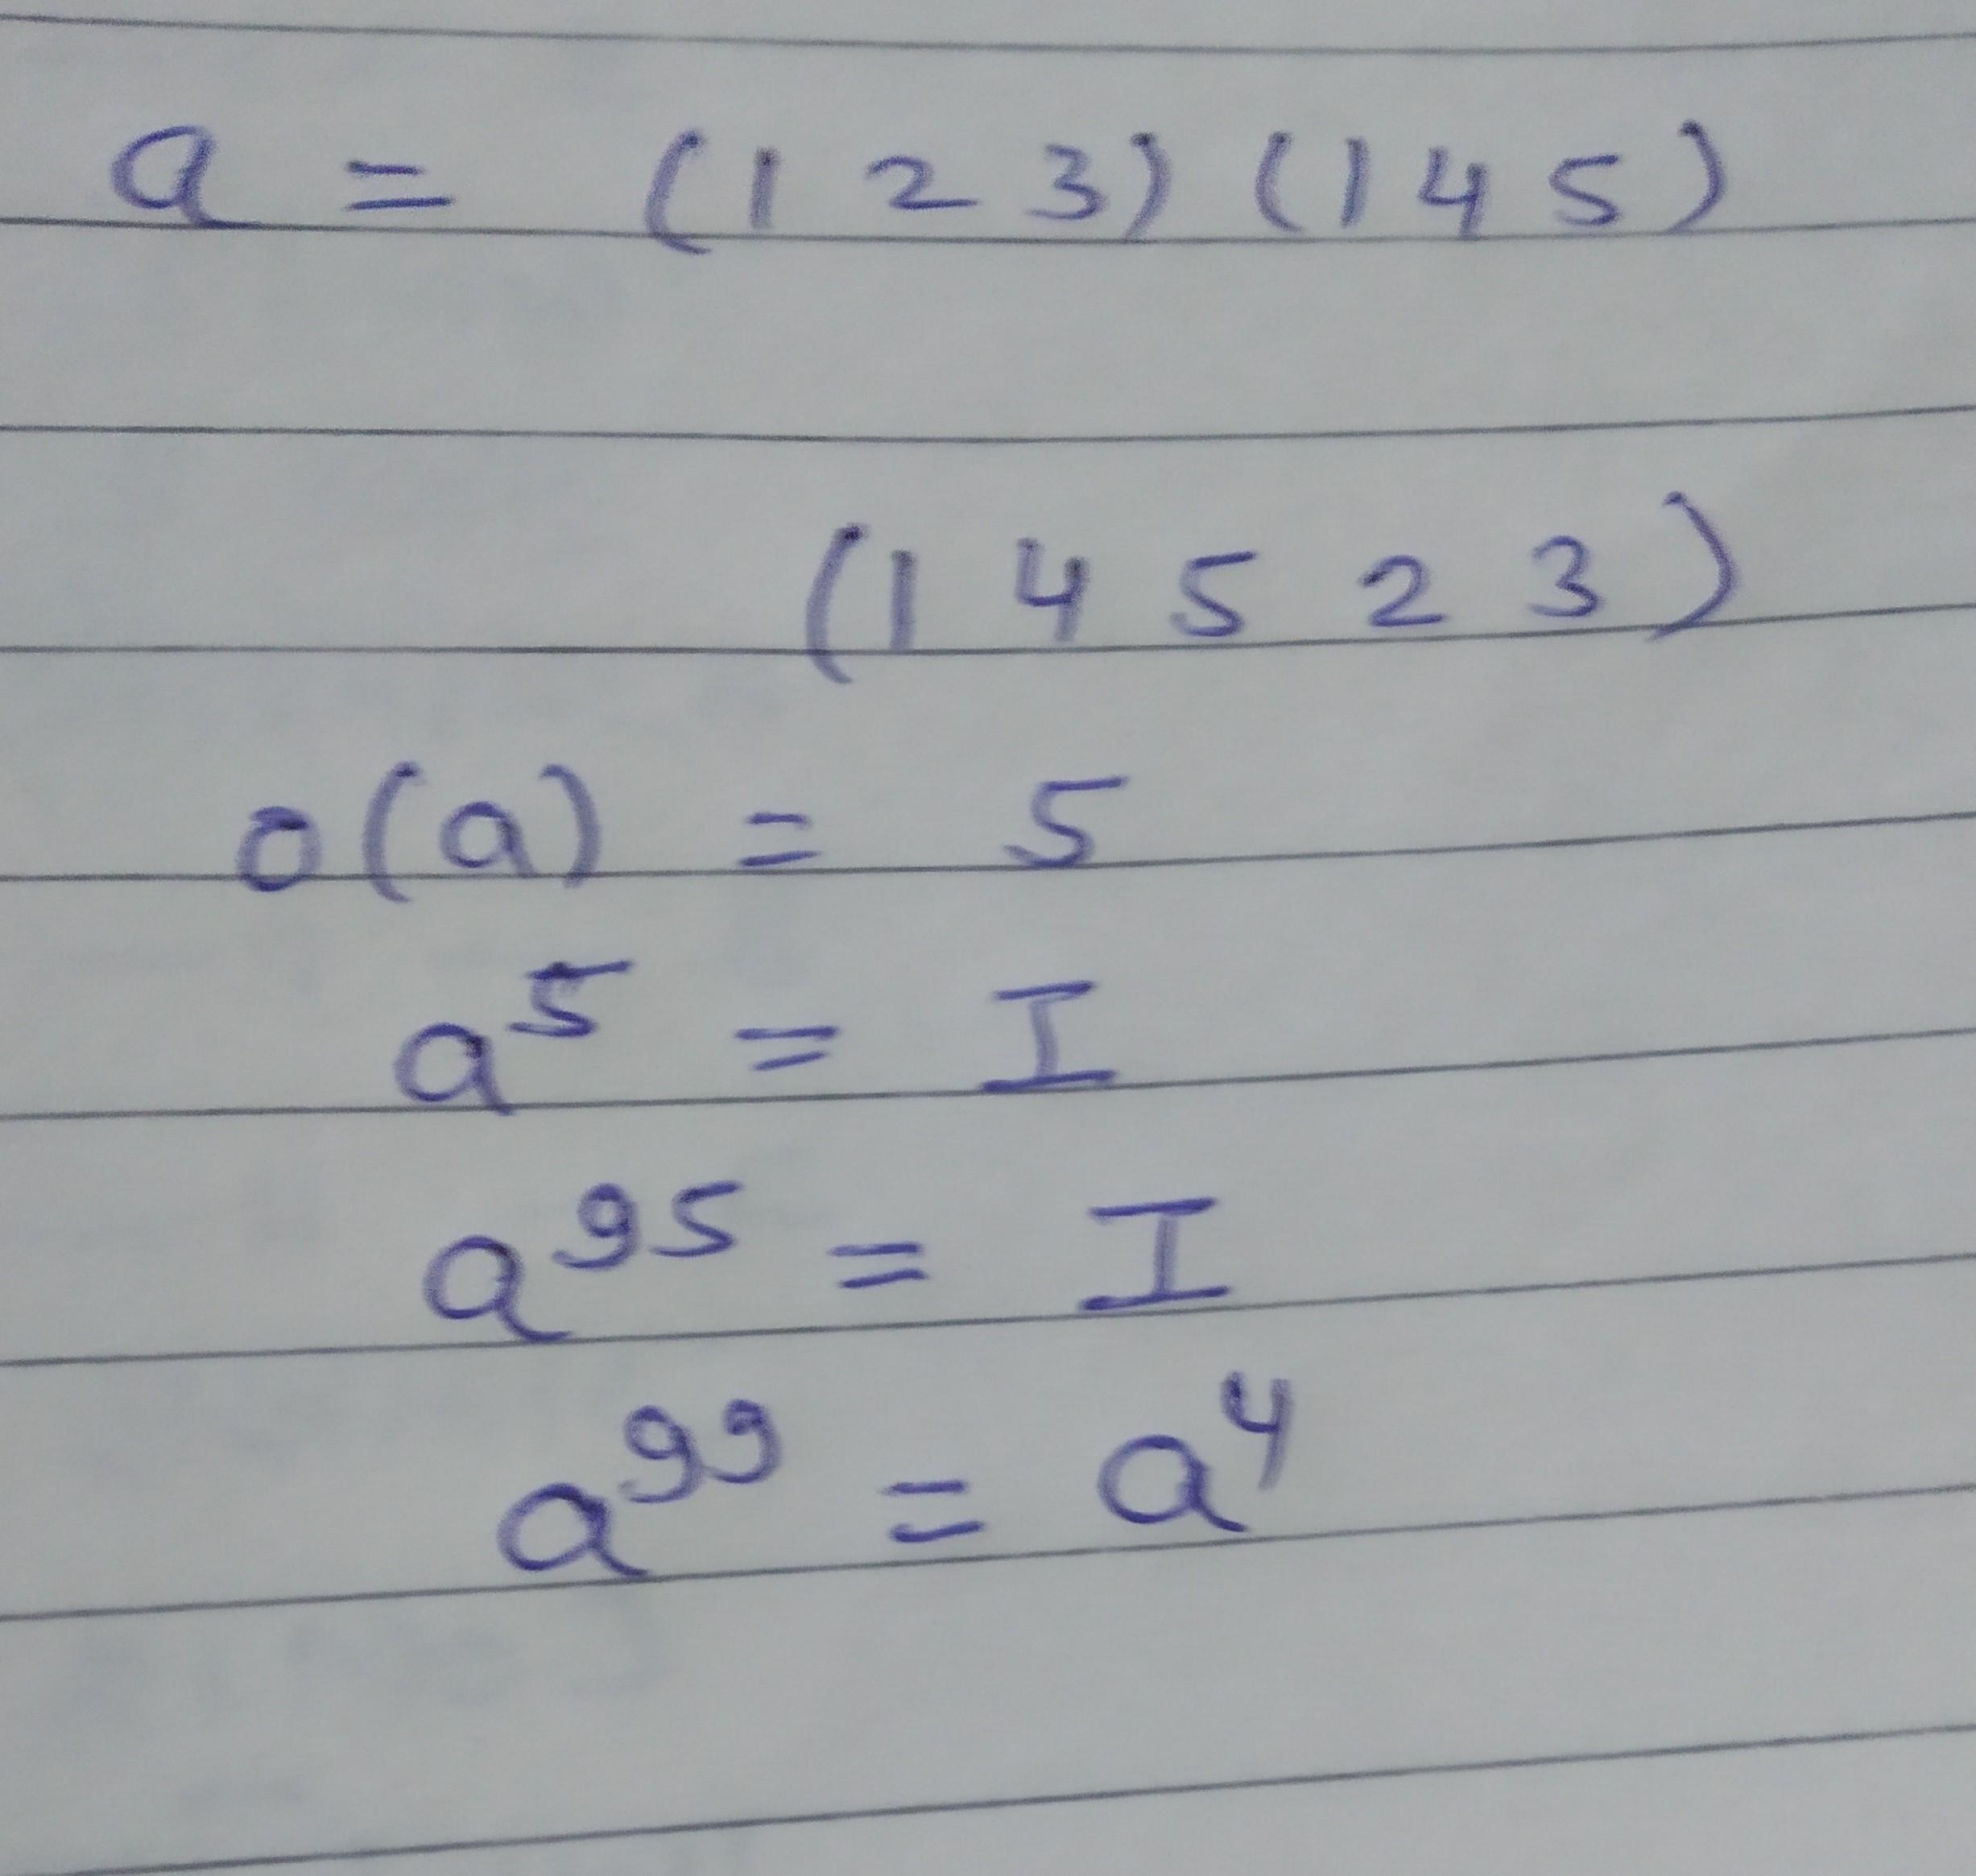 a = (1 2 3) (1 4 5)
(1 4 5 2 3)
o(a) = 5
a⁵ = I
a⁹⁵ = I
a⁹⁹ = a⁴